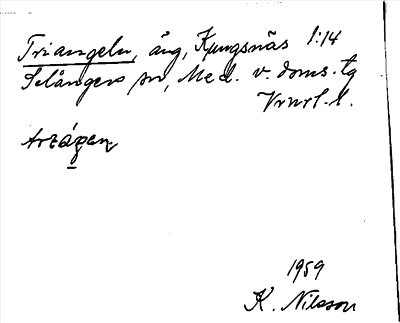 Triangeln, äng, Kungsnäs 1:14
Selångers sn, Med. v. doms. tg
Vrnrl. l.
1959
K. Nilsson